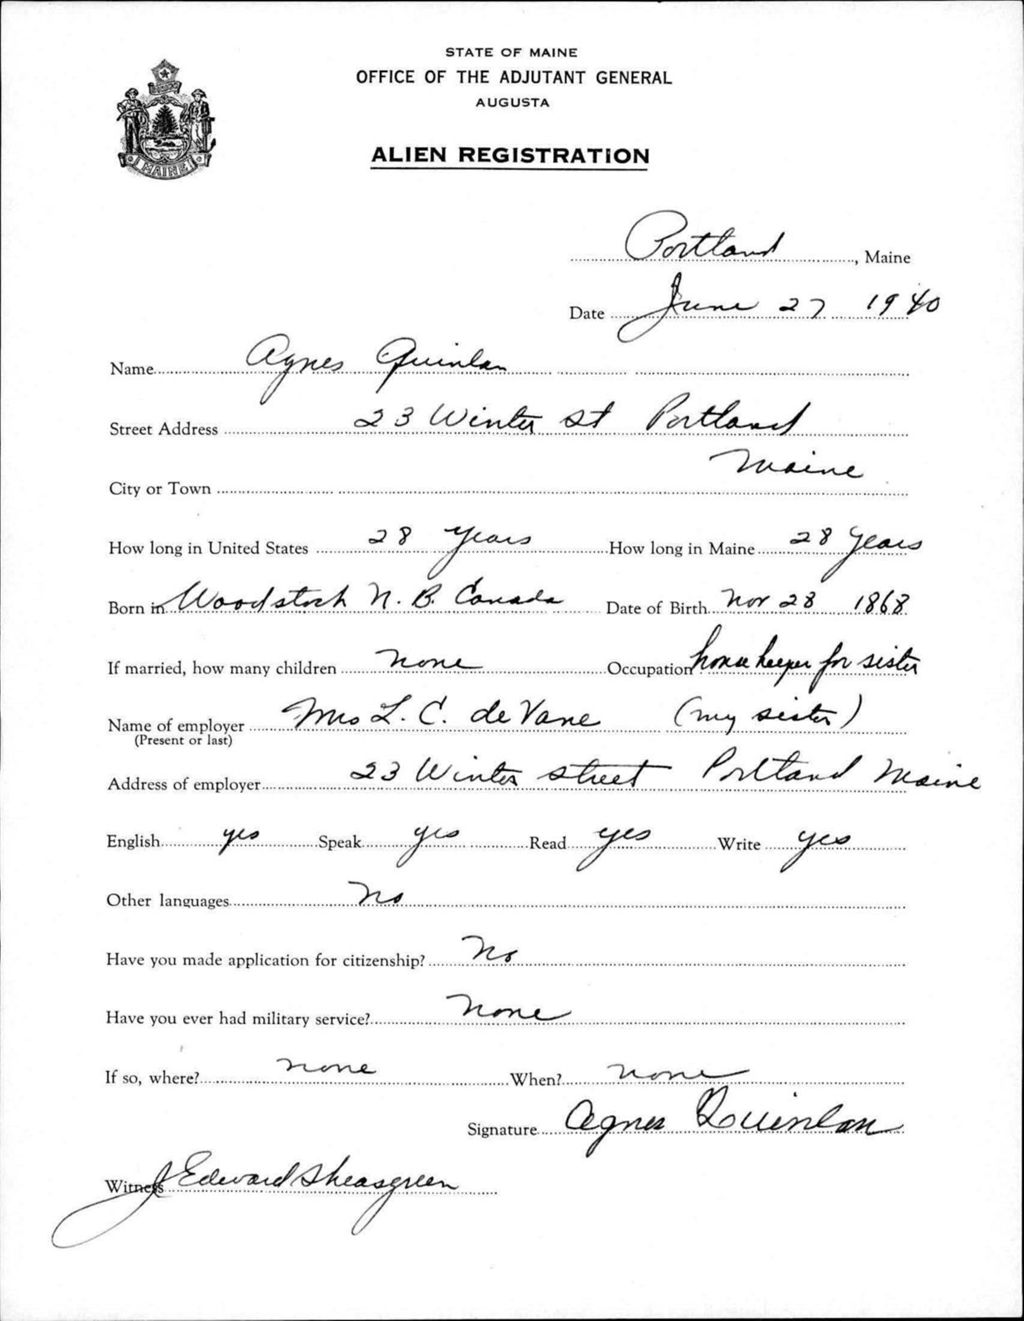 STATE OF MAINE
OFFICE OF THE ADJUTANT GENERAL
AUGUSTA
ALIEN REGISTRATION
MAINE
Portland, Maine
Date June 27 1940
Name Agnes Quinlan
Street Address 23 Winter St Portland
Maine
City or Town
How long in United States 28 years How long in Maine 28 years
Born in Woodstock N. B. Canada Date of Birth Nov 28 1868
If married, how many children none Occupation house keeper for sister
Name of employer Mrs L. C. deVane (my sister)
(Present or last)
Address of employer 23 Winter street Portland Maine
English yes Speak yes Read yes Write yes
Other languages No
Have you made application for citizenship? No
Have you ever had military service? None
If so, where? none When? none
Signature Agnes Quinlan
Witness J Edward Sheasgreen